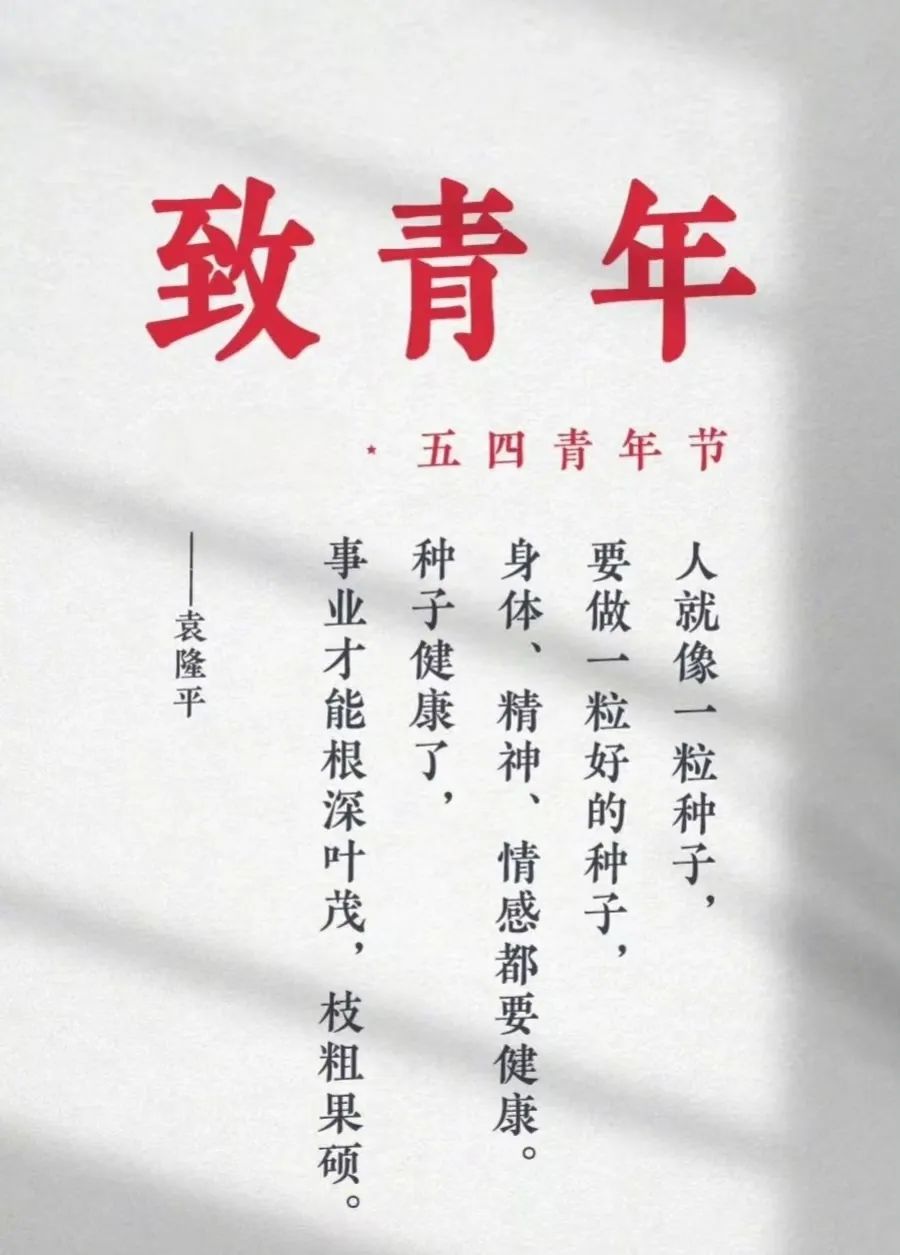 致青年
★五四青年节
人就像一粒种子，
要做一粒好的种子，
身体、精神、情感都要健康。
种子健康了，
事业才能根深叶茂，枝粗果硕。
——袁隆平